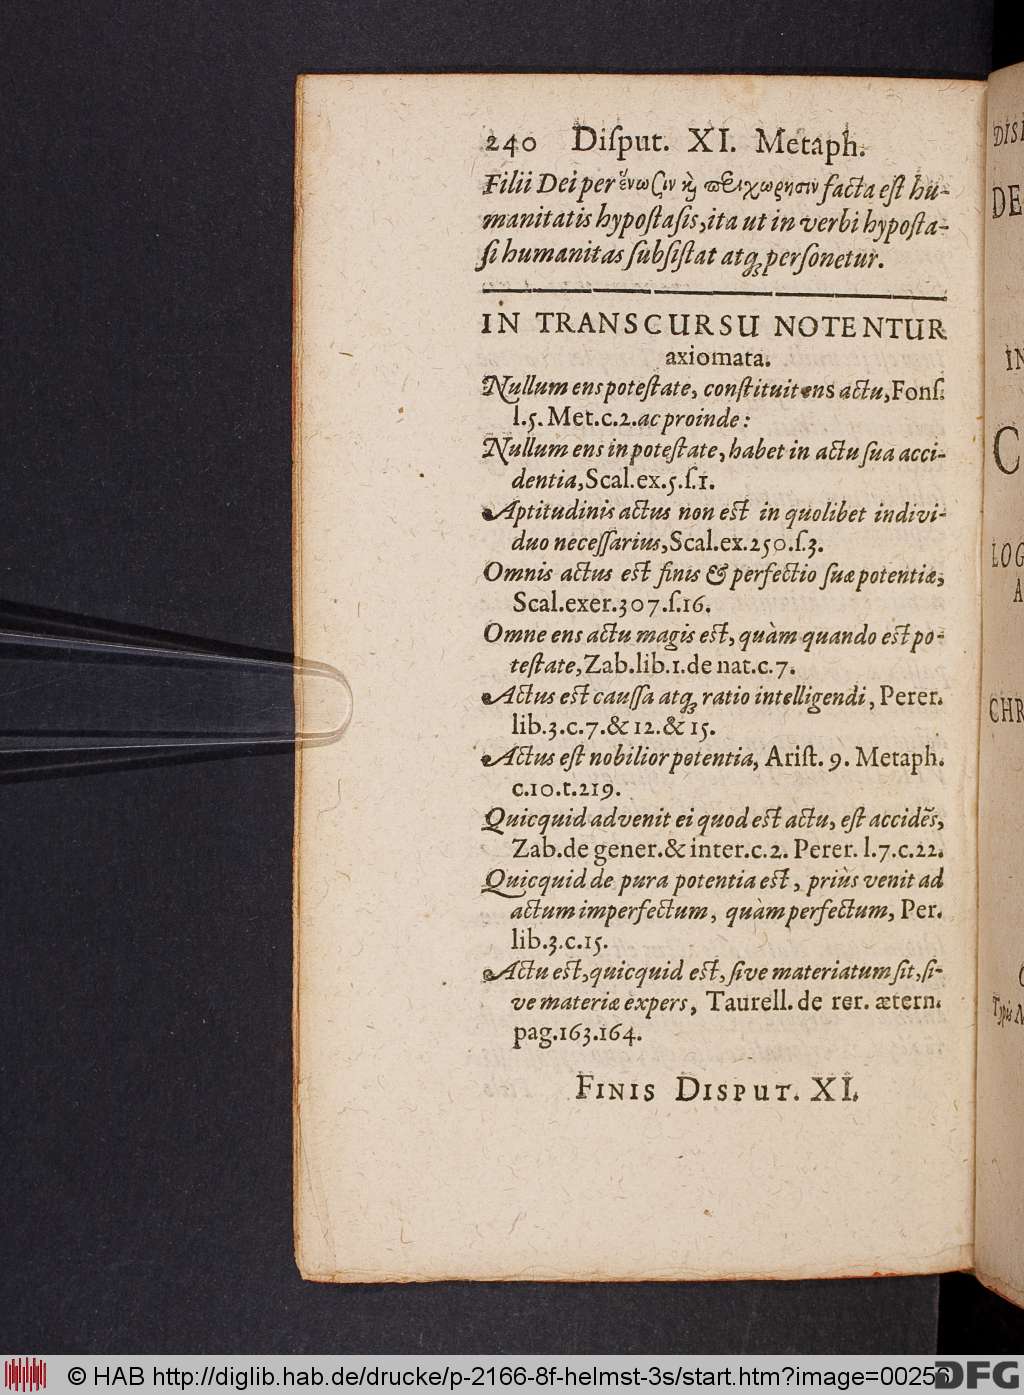 240 Diſput. XI. Metaph.
Filii Dei per ἕνωσιν ϗ̀ περιχώρησιν facta eſt hu-
manitatis hypoſtaſis, ita ut in verbi hypoſta-
ſi humanitas ſubſiſtat atq; perſonetur.
IN TRANSCURSU NOTENTUR
axiomata.
Nullum ens poteſtate, conſtituit ens actu, Fonſ.
l.5. Met.c.2. ac proinde:
Nullum ens in poteſtate, habet in actu ſua acci-
dentia, Scal.ex.5.ſ.1.
Aptitudinis actus non eſt in quolibet indivi-
duo neceſſarius, Scal.ex.250.ſ.3.
Omnis actus eſt finis & perfectio ſuæ potentiæ,
Scal.exer.307.ſ.16.
Omne ens actu magis eſt, quàm quando eſt po-
teſtate, Zab.lib.1.de nat.c.7.
Actus eſt cauſſa atq; ratio intelligendi, Perer.
lib.3.c.7.& 12.& 15.
Actus eſt nobilior potentia, Ariſt. 9. Metaph.
c.10.t.219.
Quicquid advenit ei quod eſt actu, eſt accidẽs,
Zab.de gener.& inter.c.2. Perer. l.7.c.22.
Quicquid de pura potentia eſt, priùs venit ad
actum imperfectum, quàm perfectum, Per.
lib.3.c.15.
Actu eſt, quicquid eſt, ſive materiatum ſit, ſi-
ve materiæ expers, Taurell. de rer. ætern.
pag.163.164.
FINIS DISPUT. XI.
DE
IN
C
LOG
A
CHR
Typis
© HAB http://diglib.hab.de/drucke/p-2166-8f-helmst-3s/start.htm?image=00256
DFG